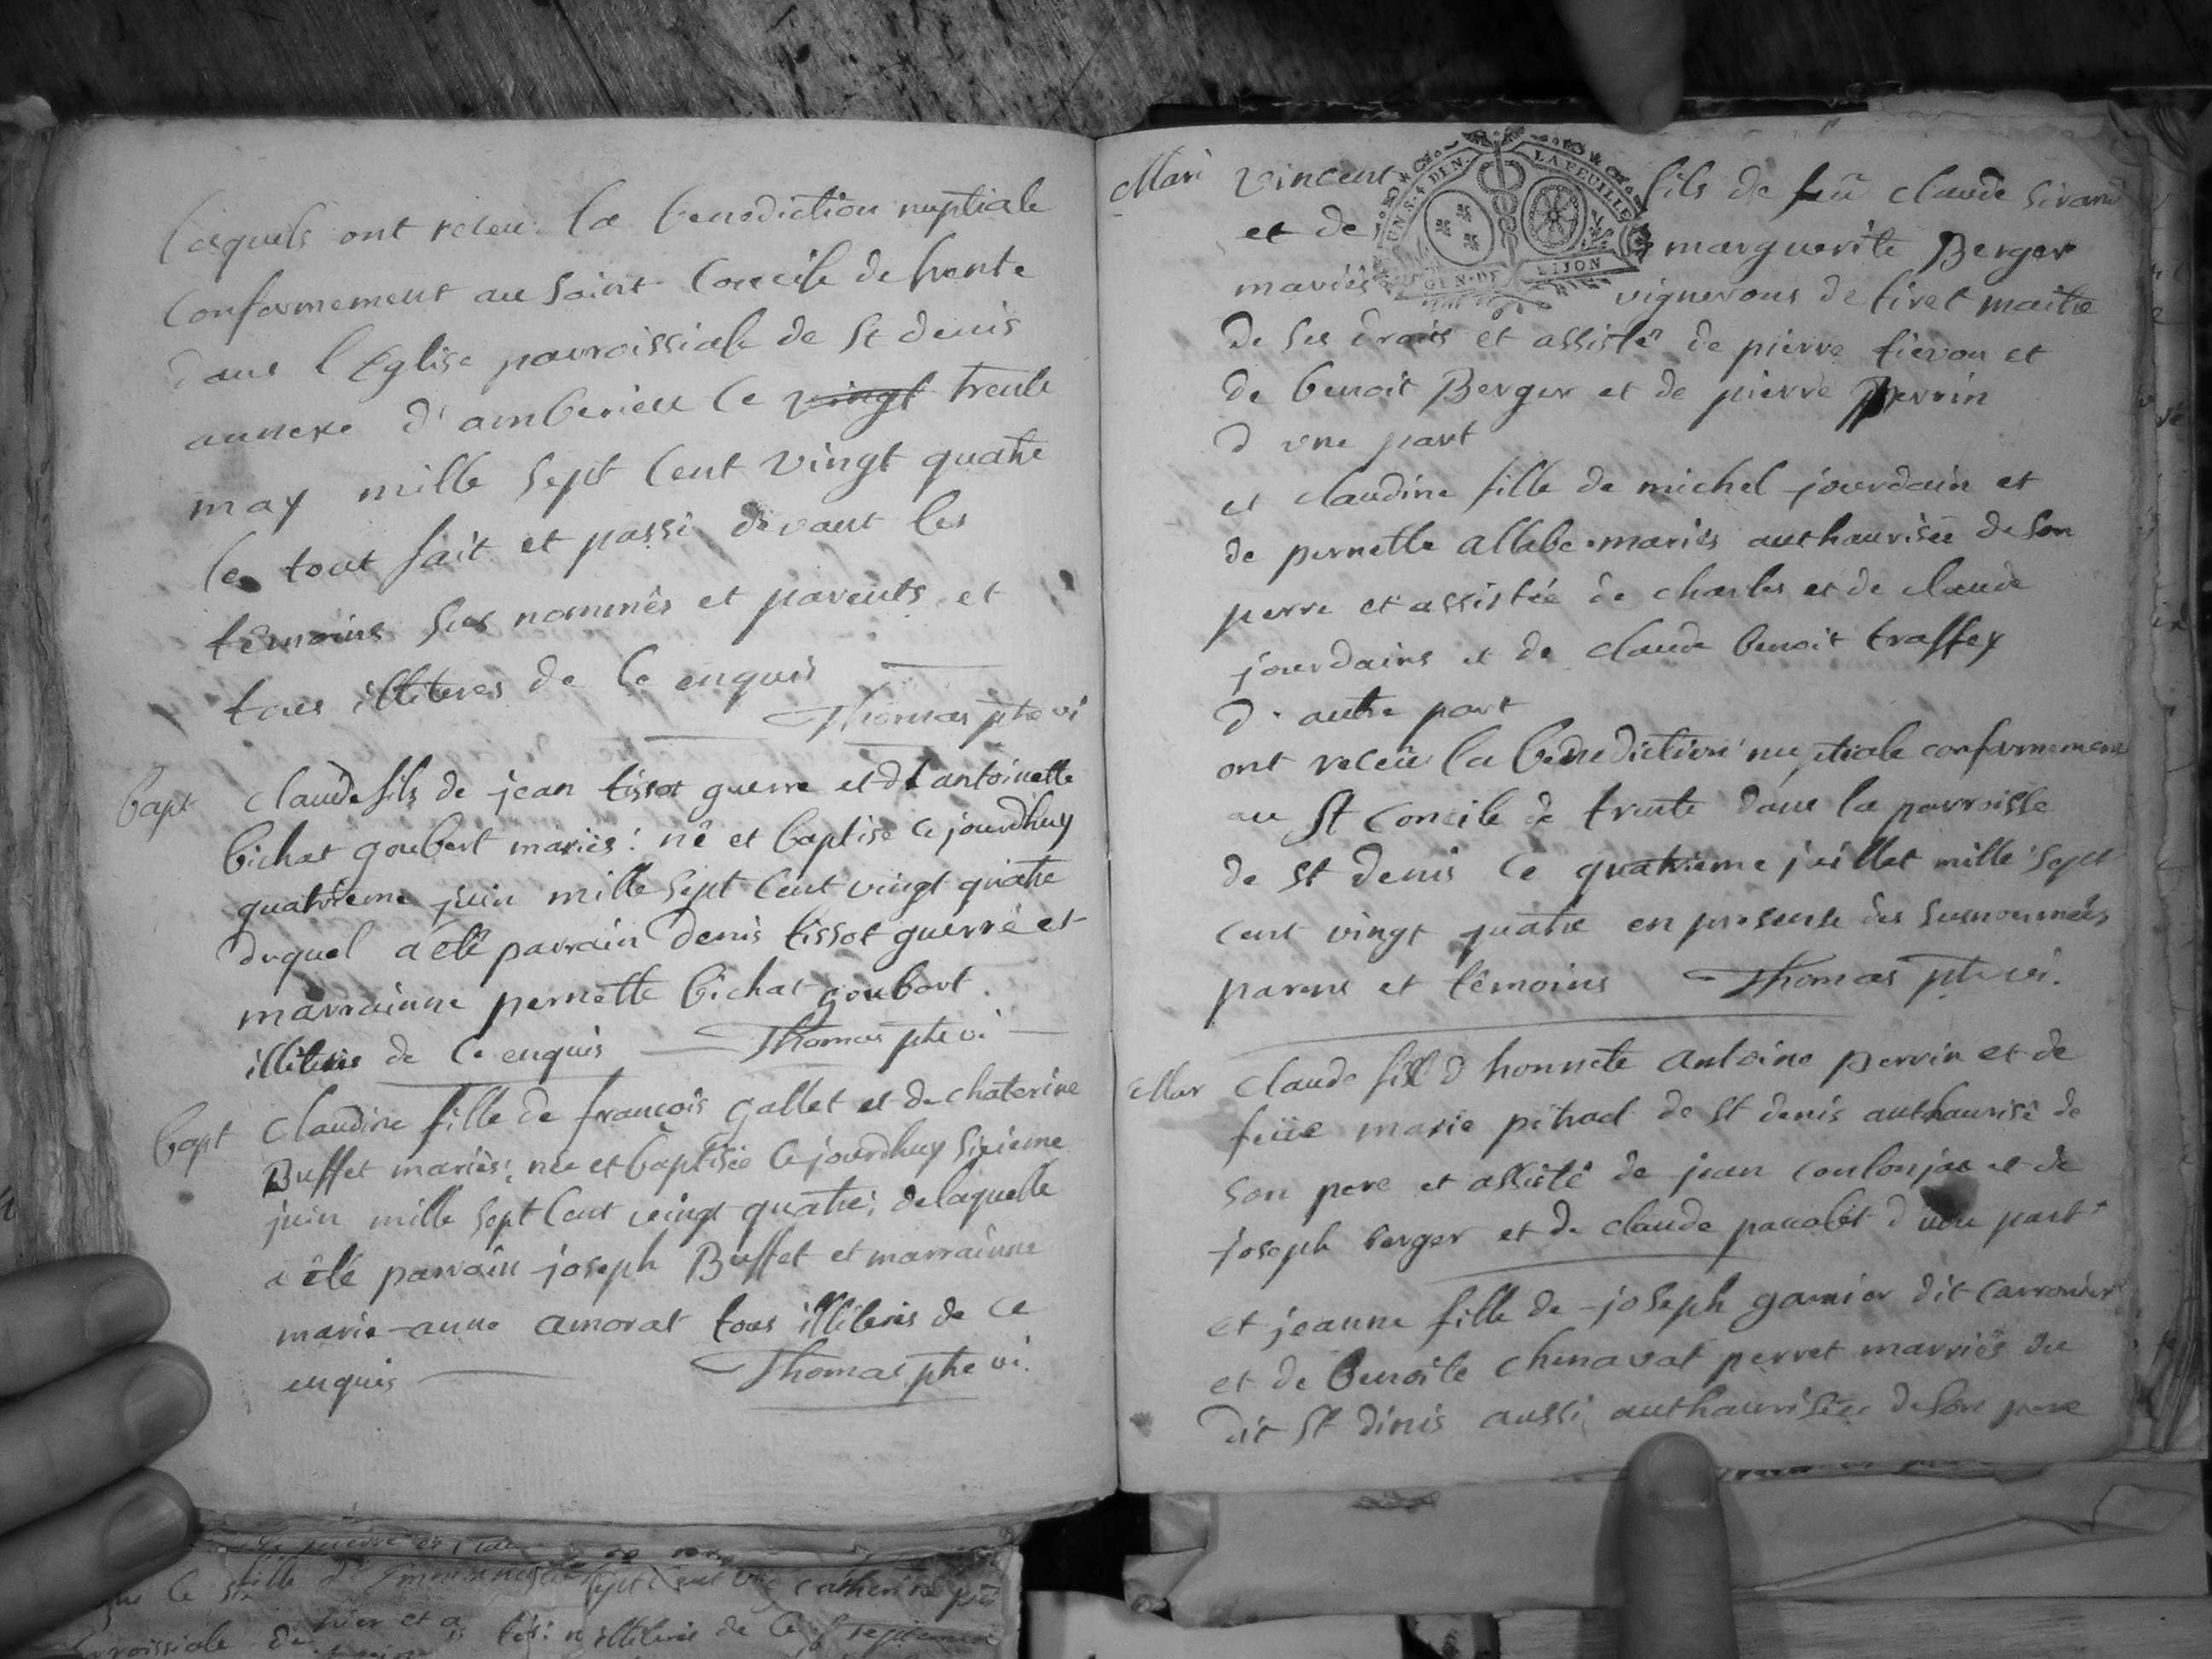 lesquels ont receu la benediction nuptiale
conformement au saint concile de trente
dans l Eglise parroissiale de st denis
annexe d'amberieu le vingt trente
may mille sept cent vingt quatre
le tout fait et passé devant les
témoins sus nommés et parents et
tous illiteres de ce enquis
Thomas ptre vi
bapt claude fils de jean tissot guerre et de antoinette
bichat goubert mariés: né et baptise ce jourdhuy
quatrieme juin mille sept cent vingt quatre
duquel a été parrain denis tissot guerre et
marrainne pernette bichat goubert
illiteres de ce enquis Thomas ptre vi
bapt claudine fille de francois gallet et de chaterine
Buffet mariés: née et baptisée ce jourdhuy sixieme
juin mille sept cent vingt quatre; de laquelle
a été parrain joseph Buffet et marrainne
marie-anne amorat tous illiteres de ce
enquis Thomas ptre vi.
Mari vincent fils de feu claude
UN S. 4 DEN. LA FEUILLE
et de marguerite Berger
GEN. DE DIJON
mariés vignerons de tiret maitre
de ses drois et assisté de pierre et
de benoit Berger et de pierre perrin
d vne part
et claudine fille de michel jourdain et
de pernette mariés authaurisée de son
perre et assistée de charles et de claude
jourdains et de claude benoit traffey
d'autre part
ont receu la benediction nuptiale conformement
au st concile de trente dans la parroisse
de st denis le quatrieme juillet mille sept
cent vingt quatre en presente des susnommés
parens et témoins Thomas ptre vi.
Mar claude fils d honnete antoine perrin et de
feüe marie de st denis authaurisé de
son pere et assisté de jean et de
joseph berger et de claude d une part
et jeanne fille de joseph garnier dit
et de benoite chenavat perret marriés du
dit st dinis aussi authaurisée de son pere